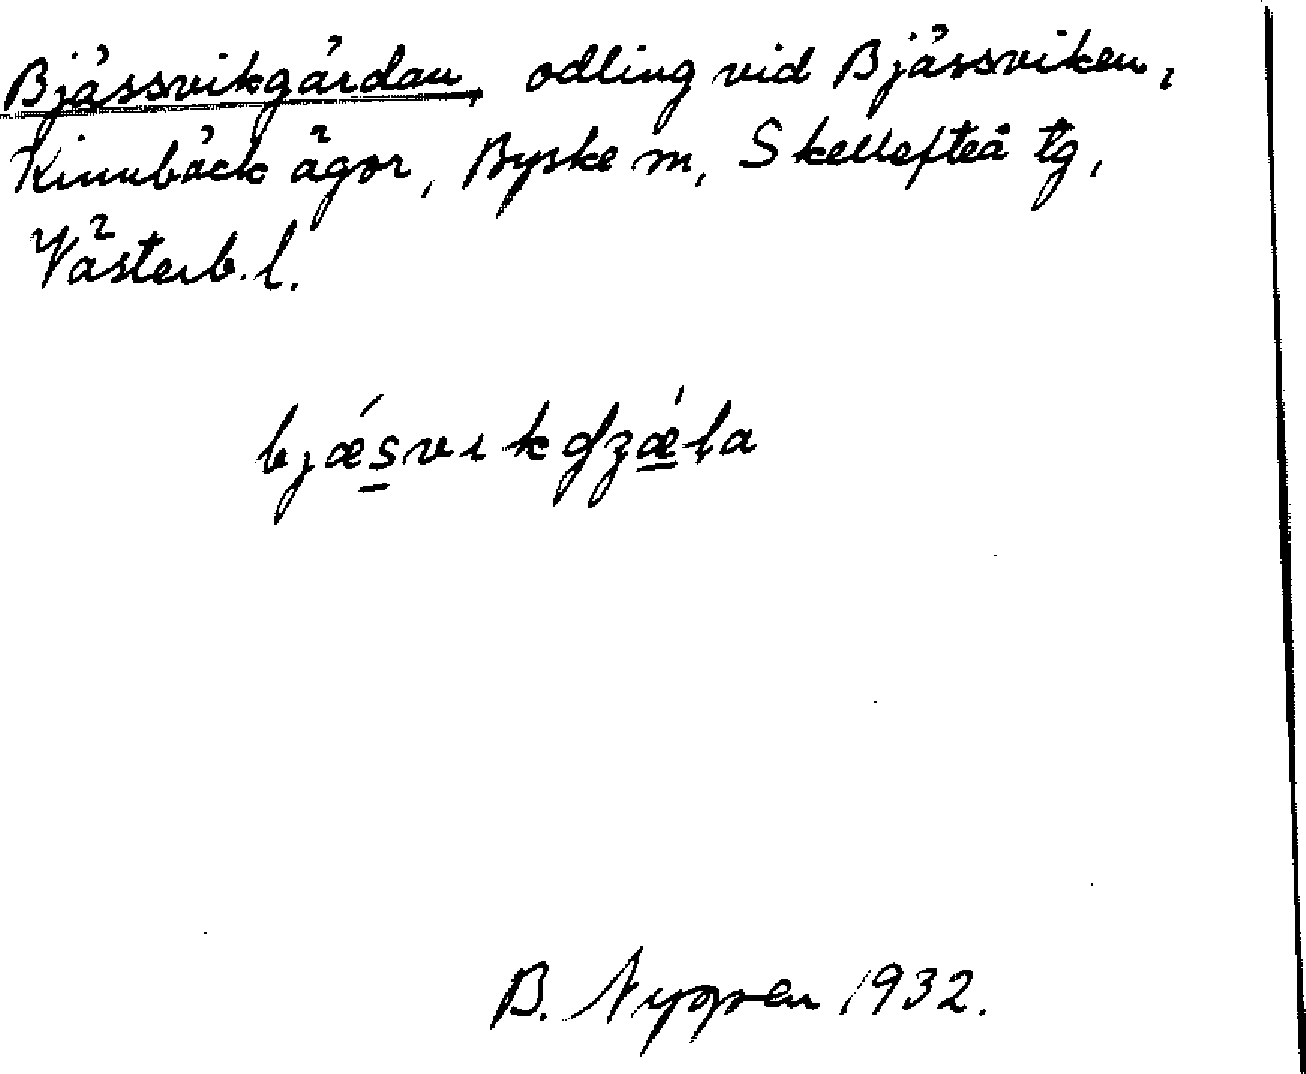 Bjässvikgärdan, odling vid Bjässviken,
Kinnbäck ägor, Byske sn, Skellefteå tg,
Västerb. l.
B. Nygren 1932.